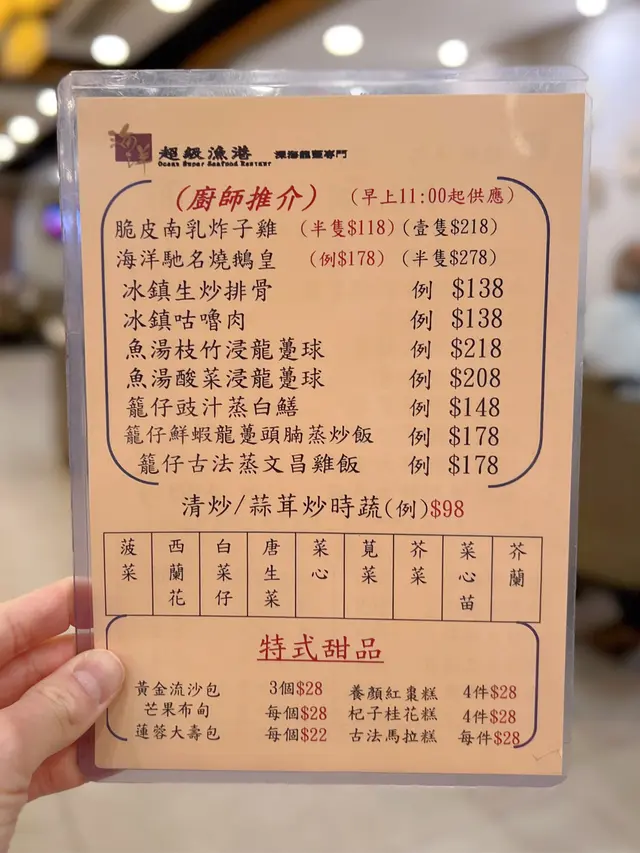 海鮮
超級漁港 深海龍躉專門
Ocean Super Seafood Restaurant
(廚師推介) (早上11:00起供應)
脆皮南乳炸子雞 (半隻$118) (壹隻$218)
海洋馳名燒鵝皇 (例$178) (半隻$278)
冰鎮生炒排骨 例 $138
冰鎮咕嚕肉 例 $138
魚湯枝竹浸龍躉球 例 $218
魚湯酸菜浸龍躉球 例 $208
籠仔豉汁蒸白鱔 例 $148
籠仔鮮蝦龍躉頭腩蒸炒飯 例 $178
籠仔古法蒸文昌雞飯 例 $178
清炒/蒜茸炒時蔬(例)$98
菠菜 西蘭花 白菜仔 唐生菜 菜心 莧菜 芥菜 菜心苗 芥蘭
特式甜品
黃金流沙包 3個$28 養顏紅棗糕 4件$28
芒果布甸 每個$28 杞子桂花糕 4件$28
蓮蓉大壽包 每個$22 古法馬拉糕 每件$28